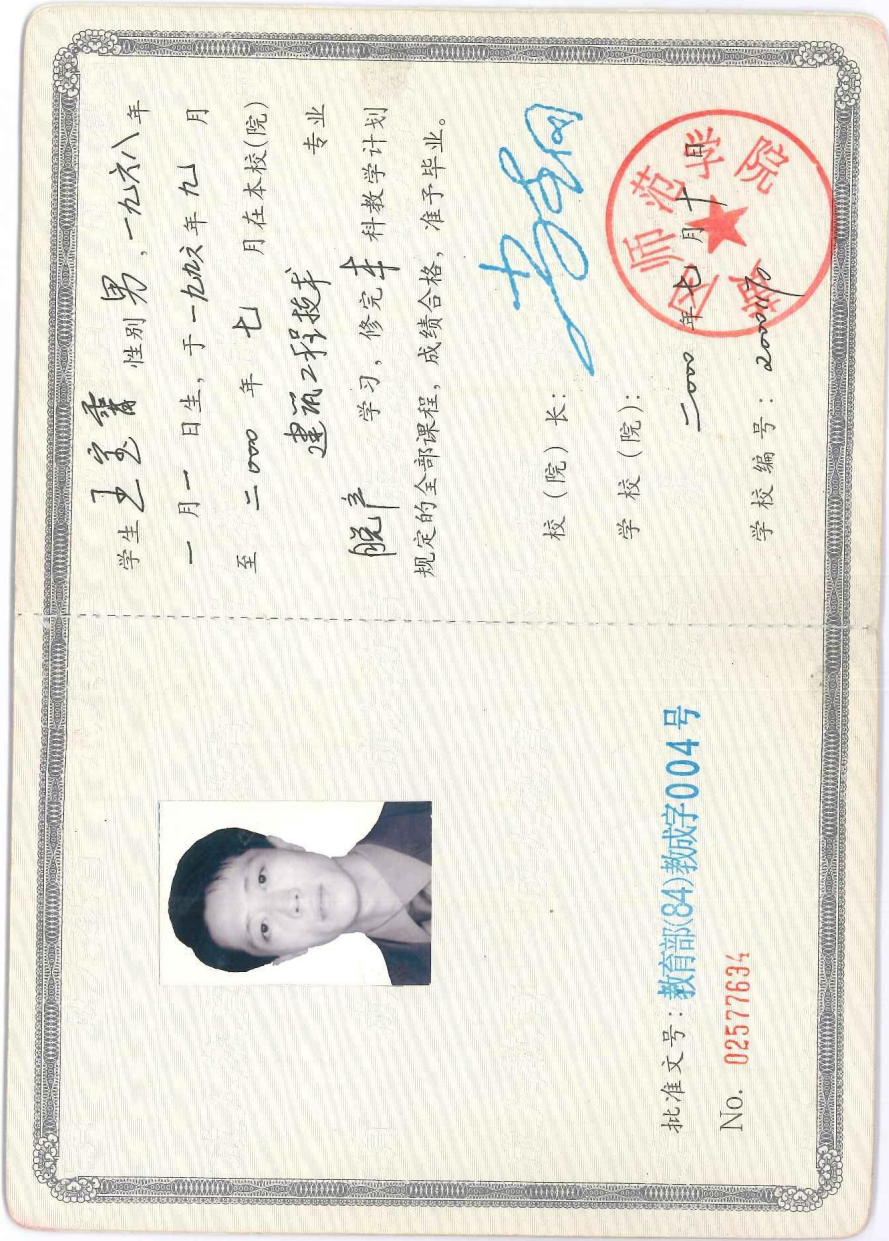 学生 王宝霄 性别 男，一九六八年
一月一日生，于一九九六年九月
至二000年七月在本校(院)
建筑工程技术 专业
脱产 学习，修完本科教学计划
规定的全部课程，成绩合格，准予毕业。
校（院）长：
学校（院）：
师范学院
二000年七月十日
学校编号：
批准文号：教育部(84)教成字004号
No. 02577634